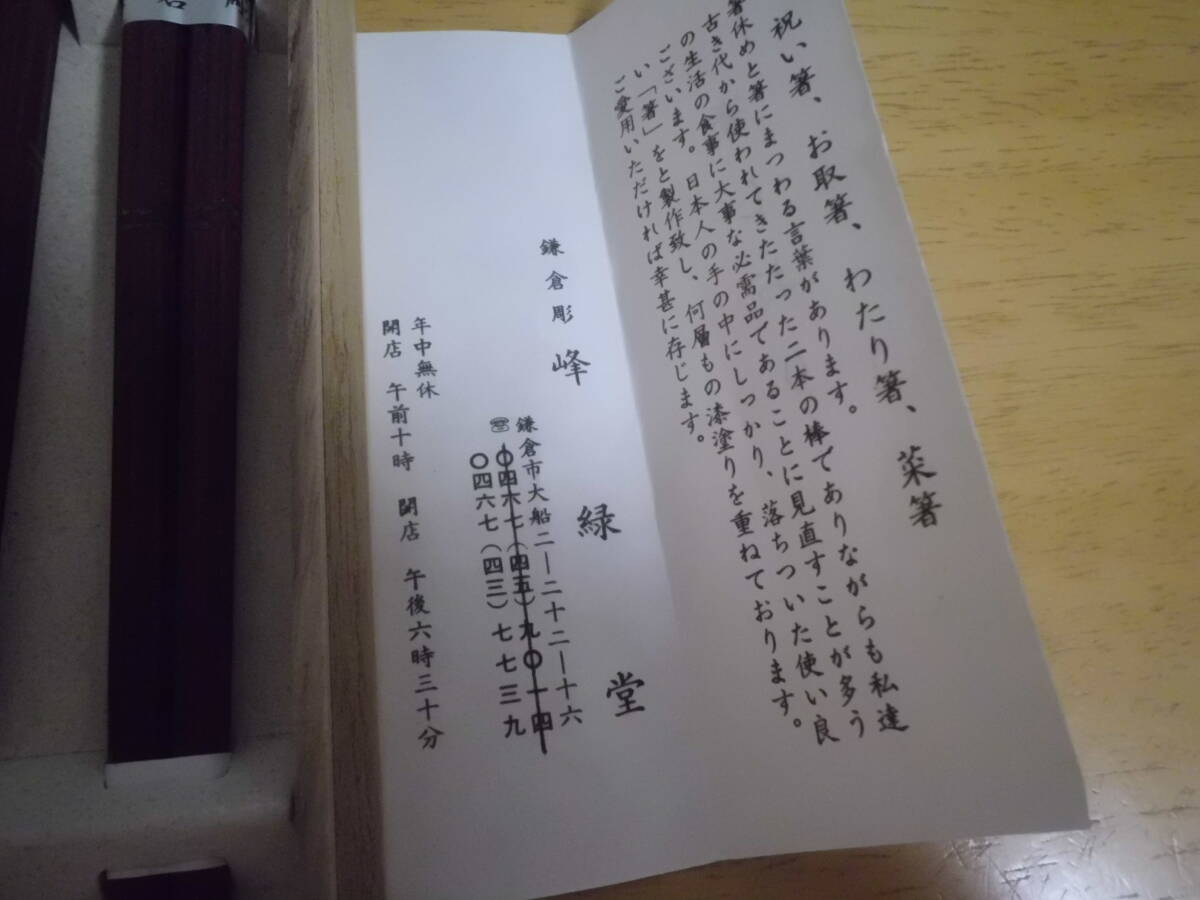 祝い箸、お取箸、わたり箸、菜箸
箸休めと箸にまつわる言葉があります。
古き代から使われてきたたった二本の棒でありながらも私達
の生活の食事に大事な必需品であることに見直すことが多う
ございます。日本人の手の中にしっかり、落ちついた使い良
い「箸」をと製作致し、何層もの漆塗りを重ねております。
ご愛用いただければ幸甚に存じます。
鎌倉彫 峰緑堂
鎌倉市大船二ー二十二ー十六
☎〇四六七(四五)九〇一四
〇四六七(四三)七七三九
年中無休
開店 午前十時 閉店 午後六時三十分